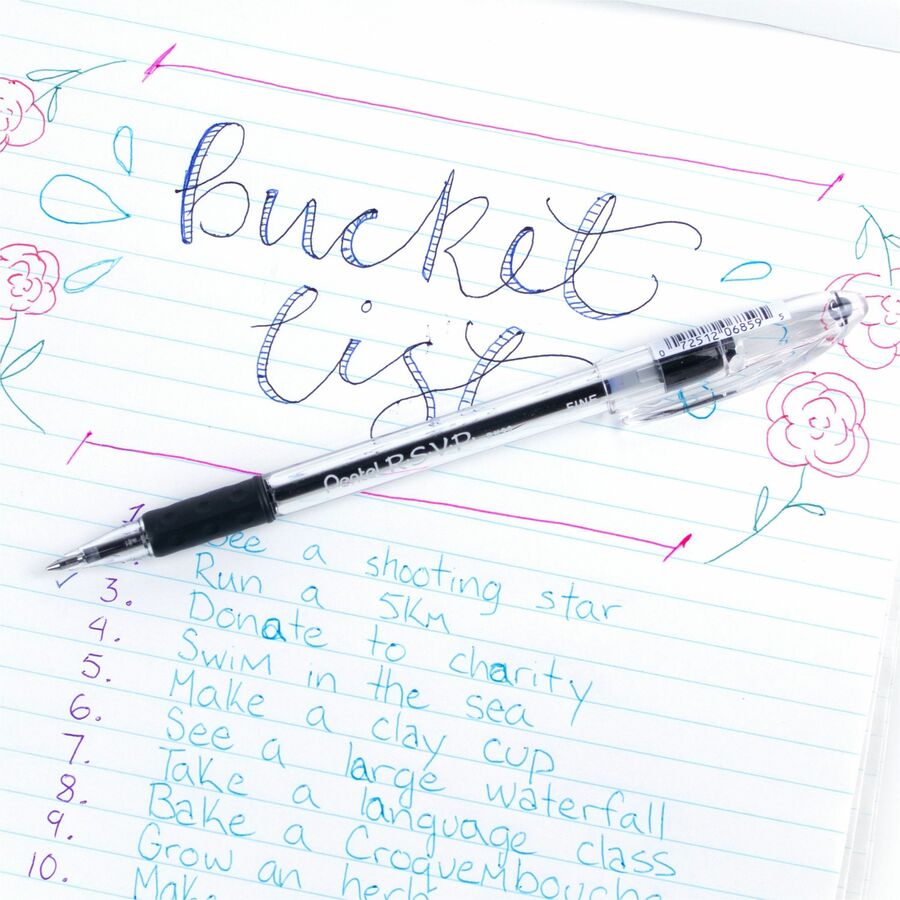 bucket
list
0 72512 06859 5
Pentel R.S.V.P. FINE
1. See a shooting star
Run a 5Km
3. Donate to charity
4. Swim in the sea
5. Make a clay cup
6. See a large waterfall
7. Take a language class
8. Bake a Croquembouche
9. Grow an herb
10. Make